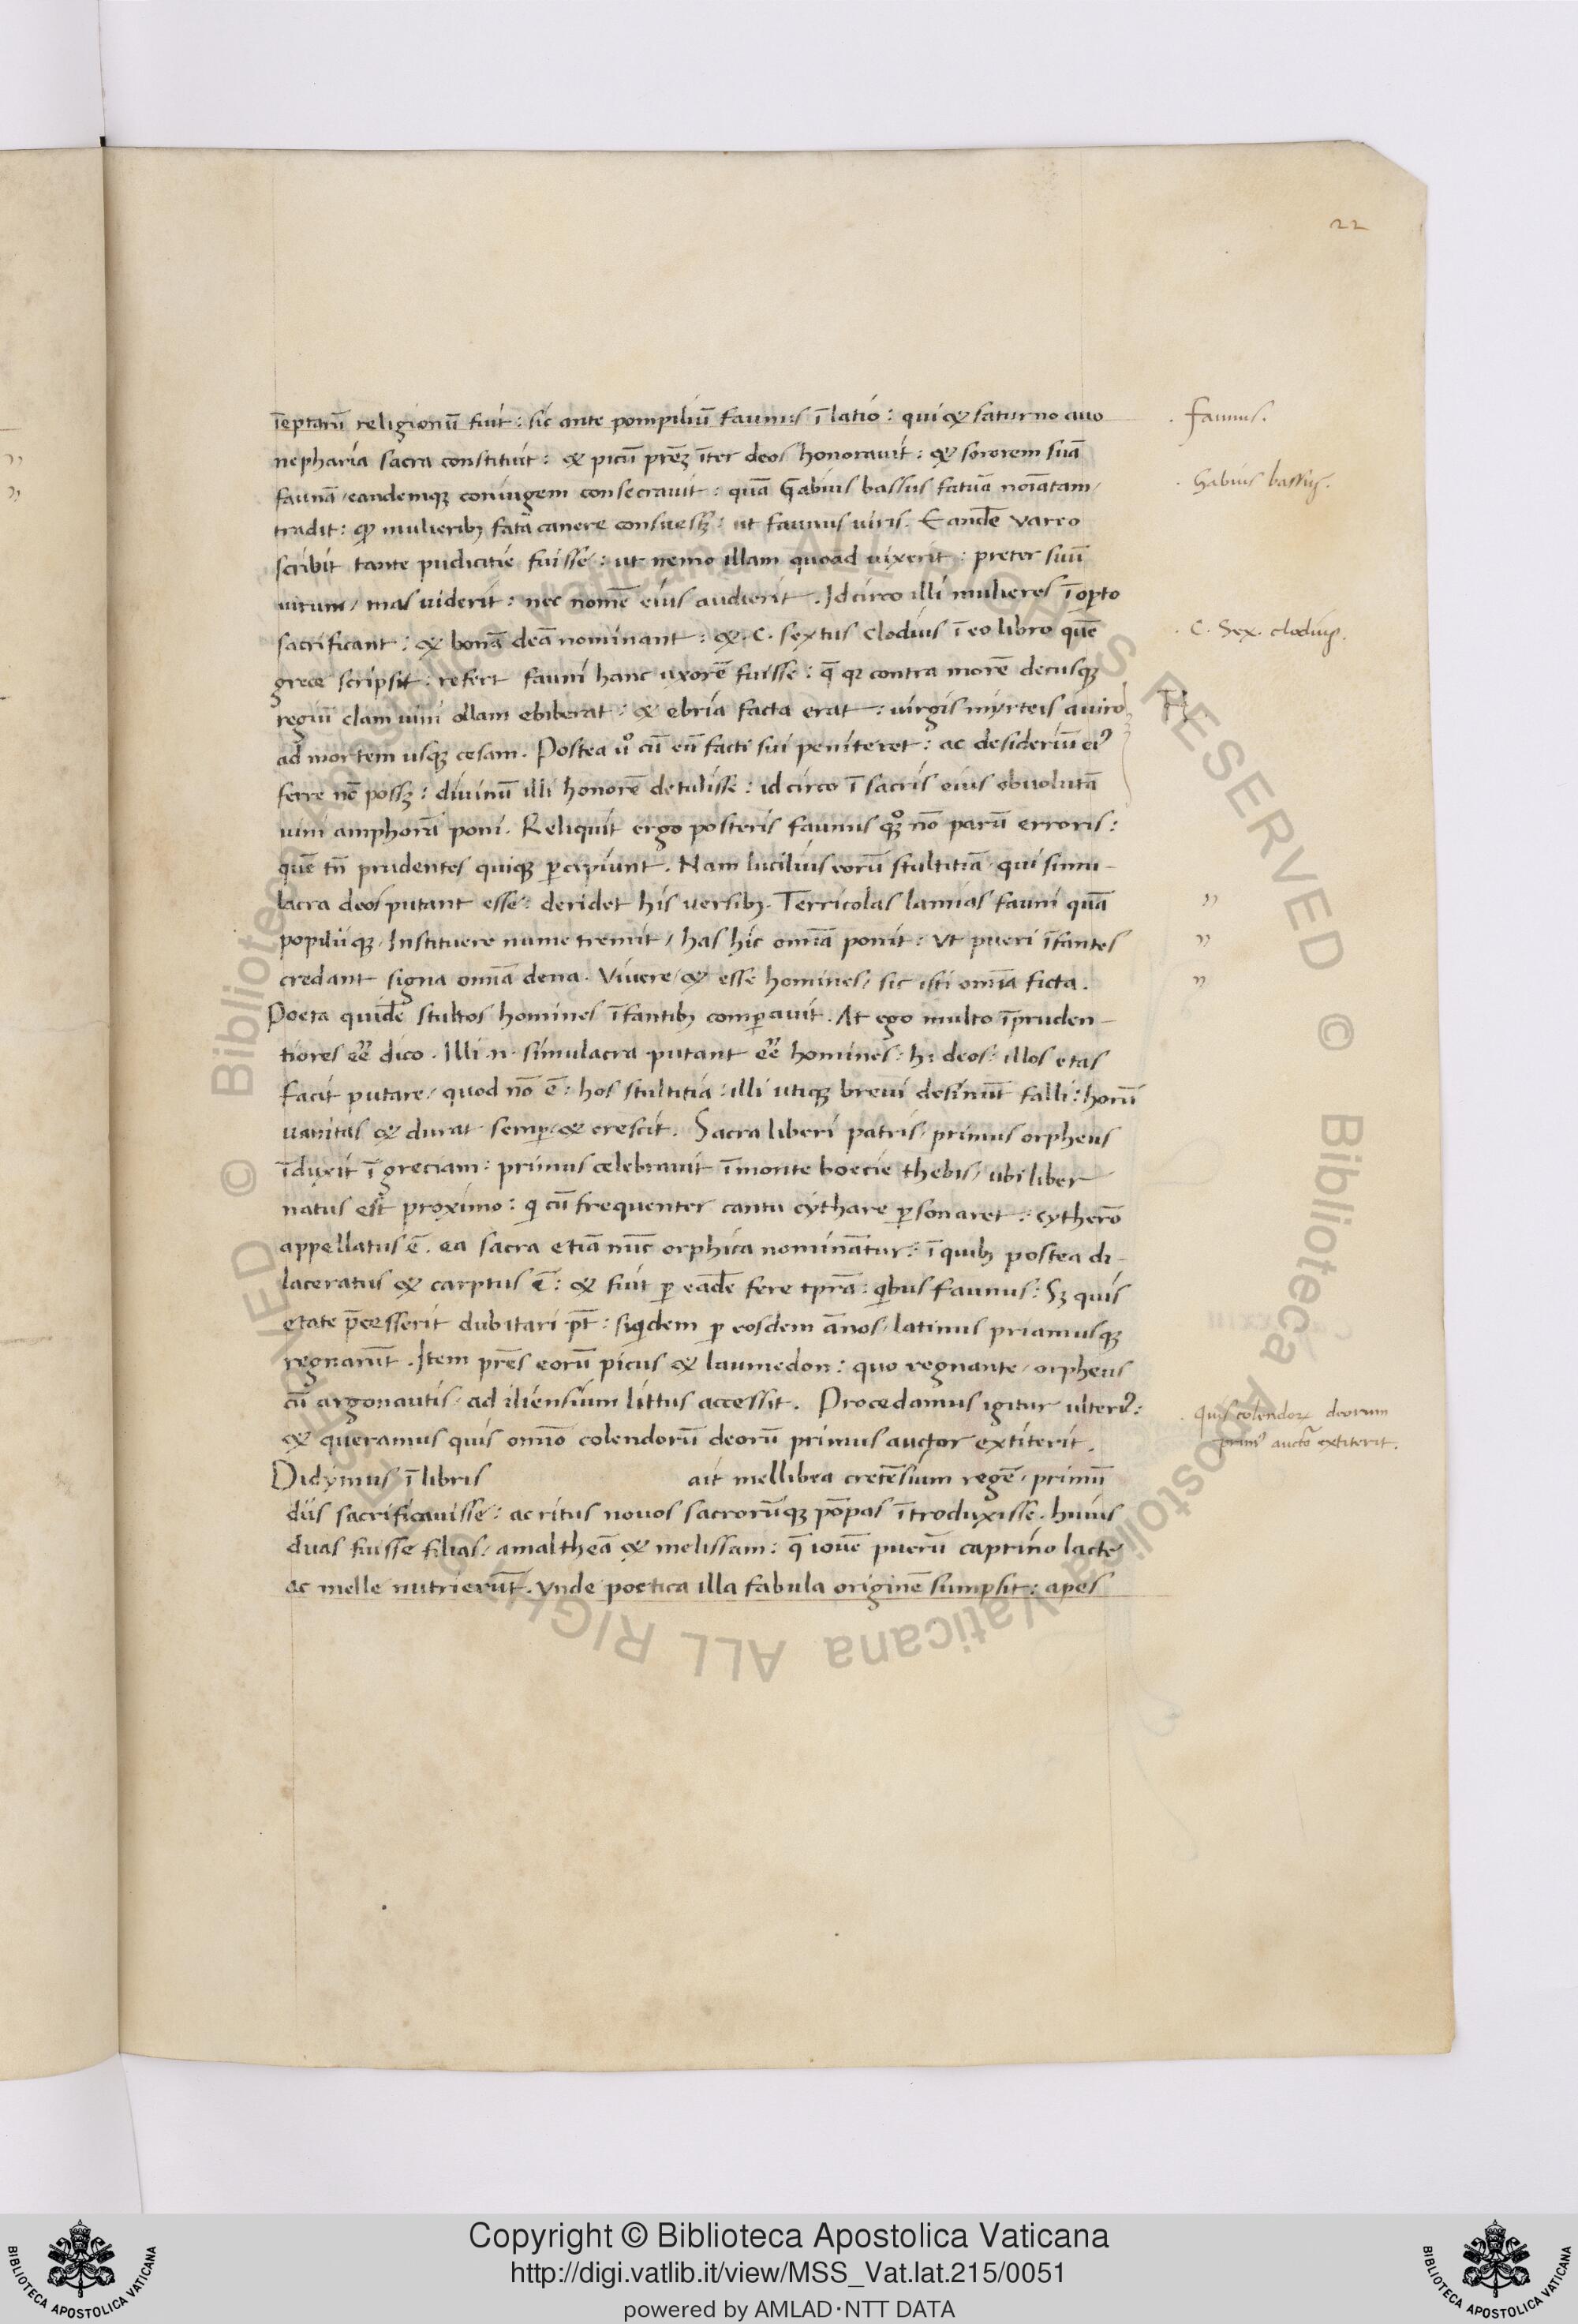 22
 īeptarū religionū fuit: sic ante pompiliū Faunus ī latio: qui & saturno auo
nepharia sacra constituit: & picū prēʒ īter deos honorauit: & sororem suā
faunā eandemqʒ coniugem consecrauit: quā Gabius bassus fatuā noīatam
tradit: qͥ mulieribʒ fata canere consuessʒ: ut faunus uiris. Eandē Varro
scribit tante pudicitie fuisse: ut nemo illam quoad uixerit: preter suū
uirum, mas uiderit: nec nomē eius audierit. Idcirco illi mulieres ī opto
sacrificant: & bonā deā nominant: & C. sextus clodius ī eo libro quē
grece scripsit: refert fauni hanc uxorē fuisse: q̄ qꝛ contra morē decusqʒ
regiū clam uini ollam ebiberat: & ebria facta erat: uirgis myrteis a uiro
ad mortem usqʒ cesam. Postea uͦ cū eū facti sui peniteret: ac desideriū eiꝰ
ferre nō possʒ: diuinū illi honorē detulisse: idcirco ī sacris eius obuolutā
uini amphorā poni. Reliquit ergo posteris faunus qʒͦ nō parū erroris:
quē tn̄ prudentes quiqʒ ꝑcipiunt. Nam lucilius eorū stultitiā qui simu-
lacra deos putant esse: deridet his uersibʒ. Terricolas lamias fauni quā
popiliiqʒ Instituere nume tremit, has hic omīa ponit: Vt pueri īfantes
credant signa omīa dena. Viuere, & esse homines, sic isti omīa ficta.
Poeta quidē stultos homines īfantibʒ comꝑauit. At ego multo īpruden-
tiores eē dico. Illi .n. simulacra putant eē homines: hi deos: illos etas
facit putare, quod nō ē: hos stultitia: illi utiqʒ breui desinūt falli: horū
uanitas & durat semꝑ & crescit. Sacra liberi patris primus orpheus
īduxit ī greciam: primus celebrauit ī monte boecie thebis, ubi liber
natus est proximo: qͥ cū frequenter cantu cythare ꝑsonaret: cytherō
appellatus ē. ea sacra etiā nūc orphica nominātur: ī quibʒ postea di-
laceratus & carptus ē: & fuit ꝑ eadē fere tp̄ra: qͥbus faunus: Sʒ quis
etate p̄cesserit dubitari pt̄: siqͥdem ꝑ eosdem ānos latinus priamusqʒ
regnarūt. Item prēs eorū picus & laumedon: quo regnante, orpheus
cū argonautis, ad iliensium littus accessit. Procedamus igitur ulteriꝰ:
& queramus quis omīo colendorū deorū primus auctor extiterit.
Didymus ī libris ait mellibea cretēsium regē, primū
diis sacrificauisse: ac ritus nouos sacrorūqʒ pōpas ītroduxisse. huius
duas fuisse filias, amaltheā & melissam: q̄ iouē puerū caprino lacte
ac melle nutrierūt. Vnde poetica illa fabula originē sumpsit: apes
. Faunus.
. Gabius bassus.
. C. Sex. clodius.
. Quis colendoꝝ deorum
primꝰ auctō extiterit.
© Biblioteca Apostolica Vaticana ALL RIGHTS RESERVED © Biblioteca Apostolica Vaticana ALL RIGHTS RESERVED
Copyright © Biblioteca Apostolica Vaticana
http://digi.vatlib.it/view/MSS_Vat.lat.215/0051
powered by AMLAD·NTT DATA
BIBLIOTECA APOSTOLICA VATICANA
BIBLIOTECA APOSTOLICA VATICANA